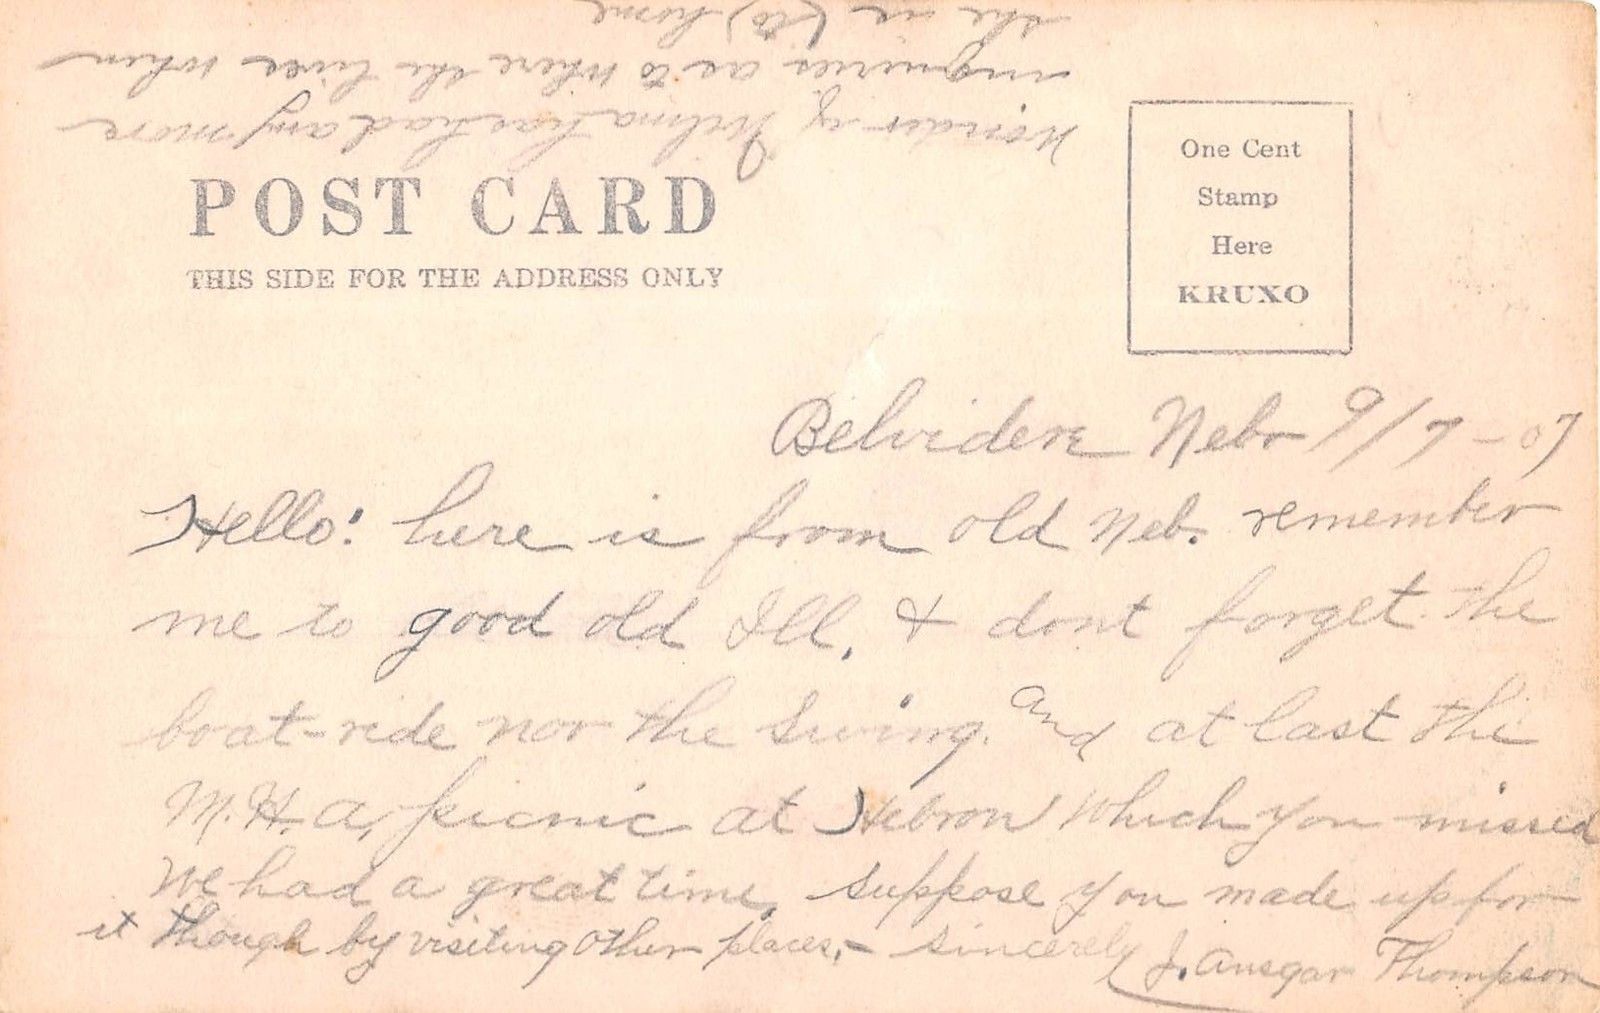 POST CARD
THIS SIDE FOR THE ADDRESS ONLY
One Cent
Stamp
Here
KRUXO
Belvidere Nebr 9/7-07
Hello! here is from old Neb. remember
me to good old Ill. & dont forget the
boat-ride nor the Swing. and at last the
M.H.a. picnic at Hebron which you missed
We had a great time, suppose you made up for
it though by visiting other places,- sincerely J. Ansgar Thompson
Wonder if Wilma has had any more
inquiries as to where she lives when
she is (to) home